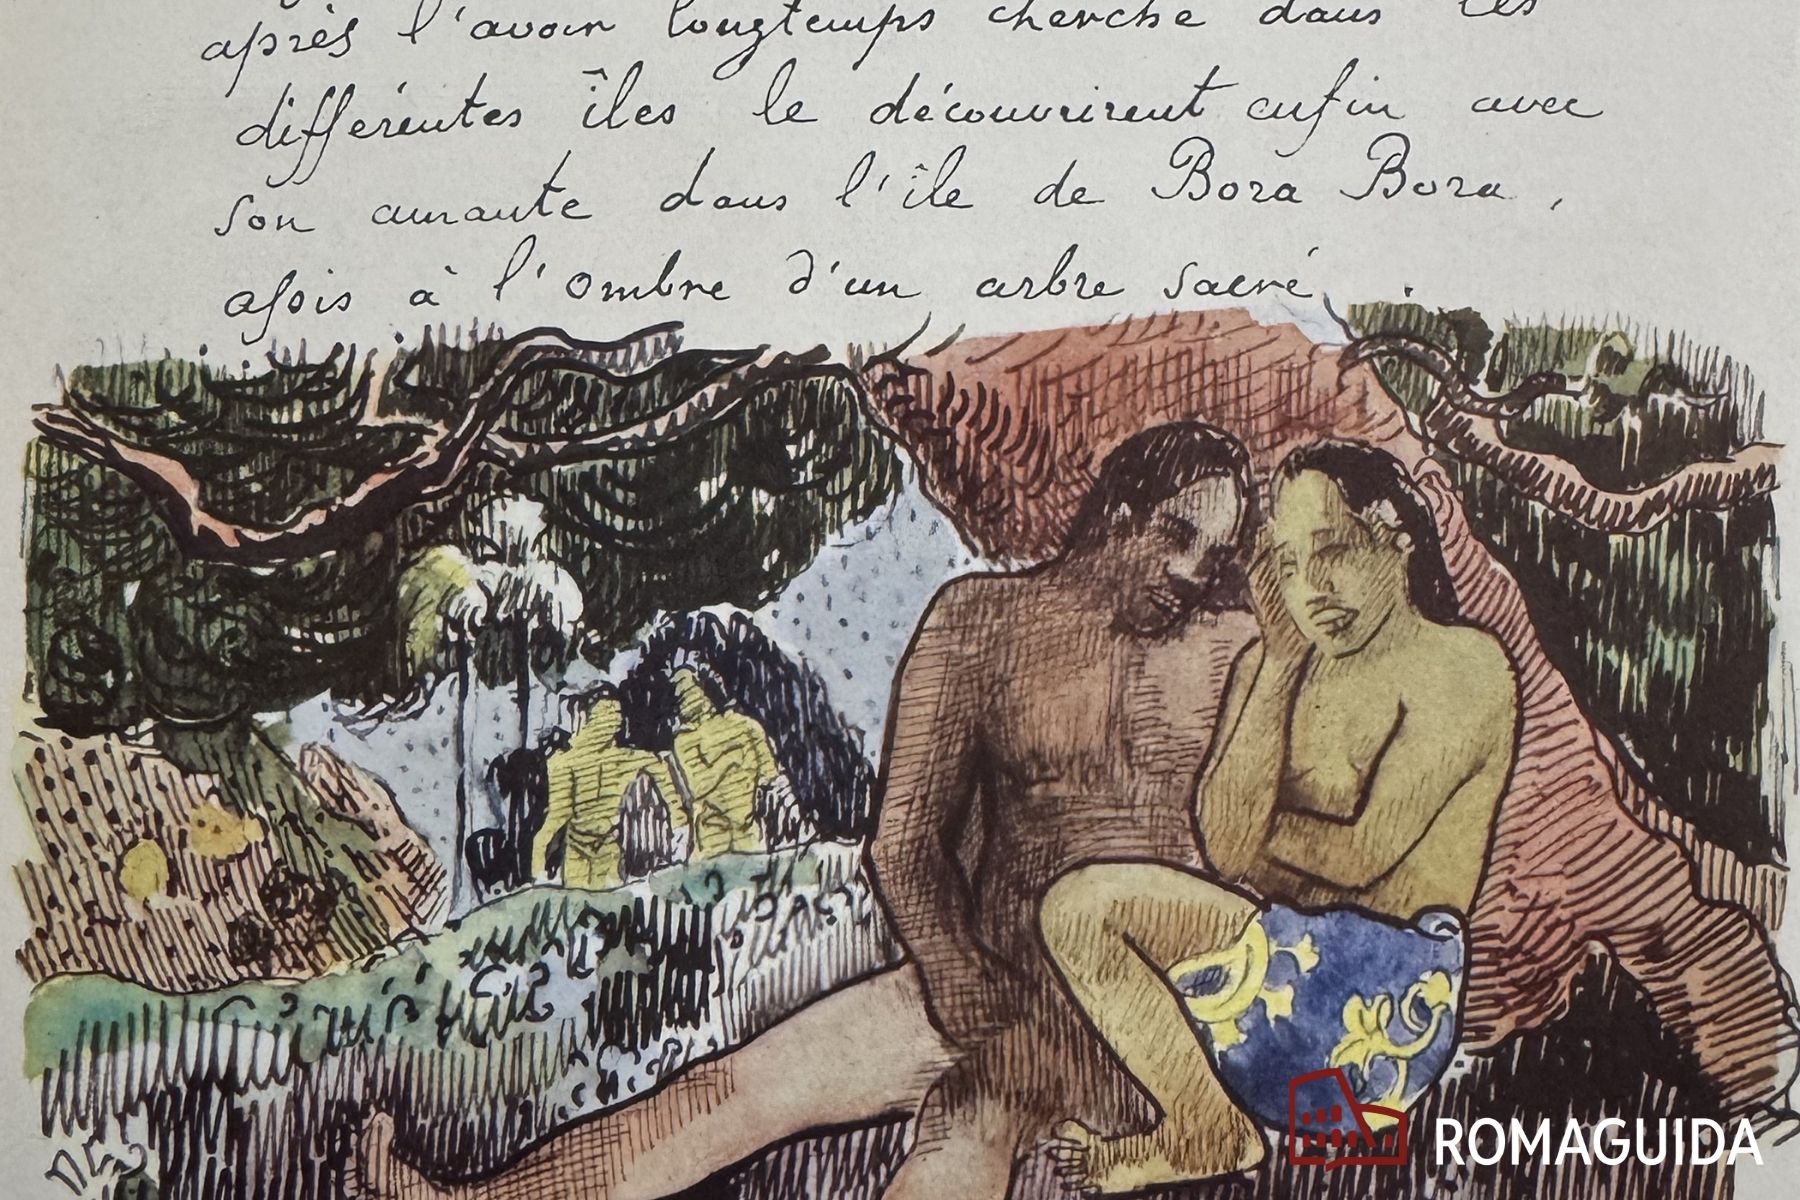 après l'avoir longtemps cherché dans les
différentes îles le découvrirent enfin avec
son amante dans l'île de Bora Bora,
assis à l'ombre d'un arbre sacré.
ROMAGUIDA